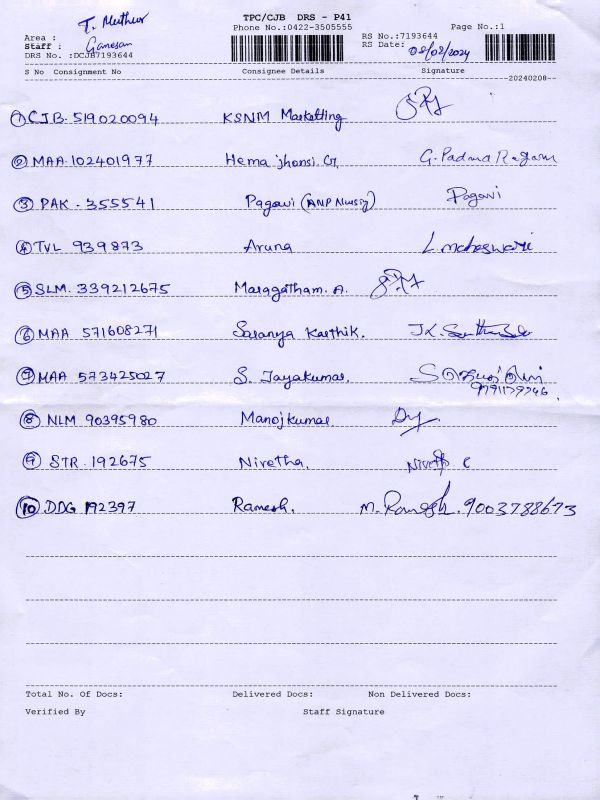 TPC/CJB DRS - P41
T. Muthur
Phone No.:0422-3505555 Page No.:1
Area : RS No.:7193644
Staff : Ganesan RS Date: 08/02/2024
DRS No. :DCJB7193644
S No Consignment No Consignee Details Signature
20240208
1 CJB. 519020094 KSNM Marketting
2 MAA. 102401977 Hema jhansi. G G. Padma Ragam
3 PAK - 355541 Pagavi (ANP Nursig) Pagavi
4 TVL 939873 Aruna L. maheswari
5 SLM. 339212675 Maragatham. A.
6 MAA 571608271 Saranya Karthik.
7 MAA 573425027 S. Jayakumar.
9791179746
8 NLM 90395980 Manojkumar
9 STR. 192675 Nivetha. Nivetha C
10 DDG 192397 Ramesh. M. Ramesh. 9003788673
Total No. Of Docs: Delivered Docs: Non Delivered Docs:
Verified By Staff Signature